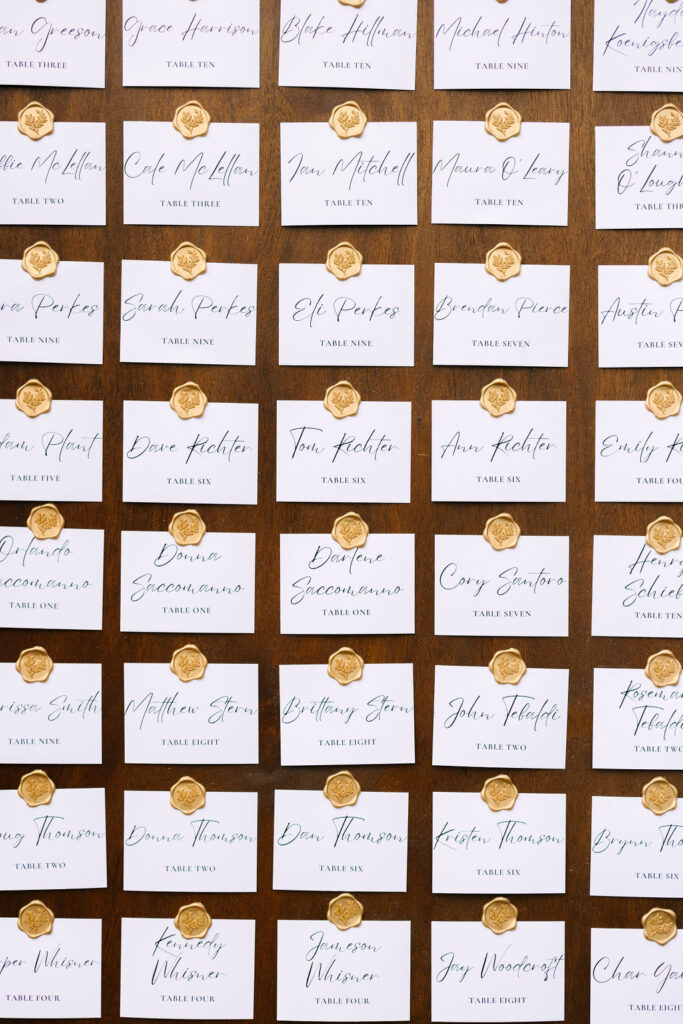 Greeson
TABLE THREE
Grace Harrison
TABLE TEN
Blake Hillman
TABLE TEN
Michael Hinton
TABLE NINE
TABLE NIN
McLellan
TABLE TWO
Cale McLellan
TABLE THREE
Ian Mitchell
TABLE TEN
Maura O'Leary
TABLE TEN
Shann
O'Lough
TABLE THR
Perkes
TABLE NINE
Sarah Perkes
TABLE NINE
Eli Perkes
TABLE NINE
Brendan Pierce
TABLE SEVEN
Austin
TABLE SEV
Plant
TABLE FIVE
Dave Richter
TABLE SIX
Tom Richter
TABLE SIX
Ann Richter
TABLE SIX
Emily
TABLE FOU
Orlando
TABLE ONE
Donna
Saccomanno
TABLE ONE
Darlene
Saccomanno
TABLE ONE
Cory Santoro
TABLE SEVEN
Henry
Schief
TABLE TEN
Smith
TABLE NINE
Matthew Stern
TABLE EIGHT
Brittany Stern
TABLE EIGHT
John Tebaldi
TABLE TWO
Rosema
Tebaldi
TABLE TWO
Thomson
TABLE TWO
Donna Thomson
TABLE TWO
Dan Thomson
TABLE SIX
Kristen Thomson
TABLE SIX
Brynn Tho
TABLE SIX
Whisner
TABLE FOUR
Kennedy
Whisner
TABLE FOUR
Jameson
Whisner
TABLE FOUR
Jay Woodcroft
TABLE EIGHT
Char
TABLE EIGHT